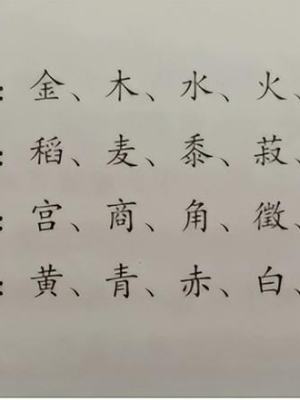 ：金、木、水、火、
：稻、麦、黍、菽、
：宫、商、角、徵、
：黄、青、赤、白、